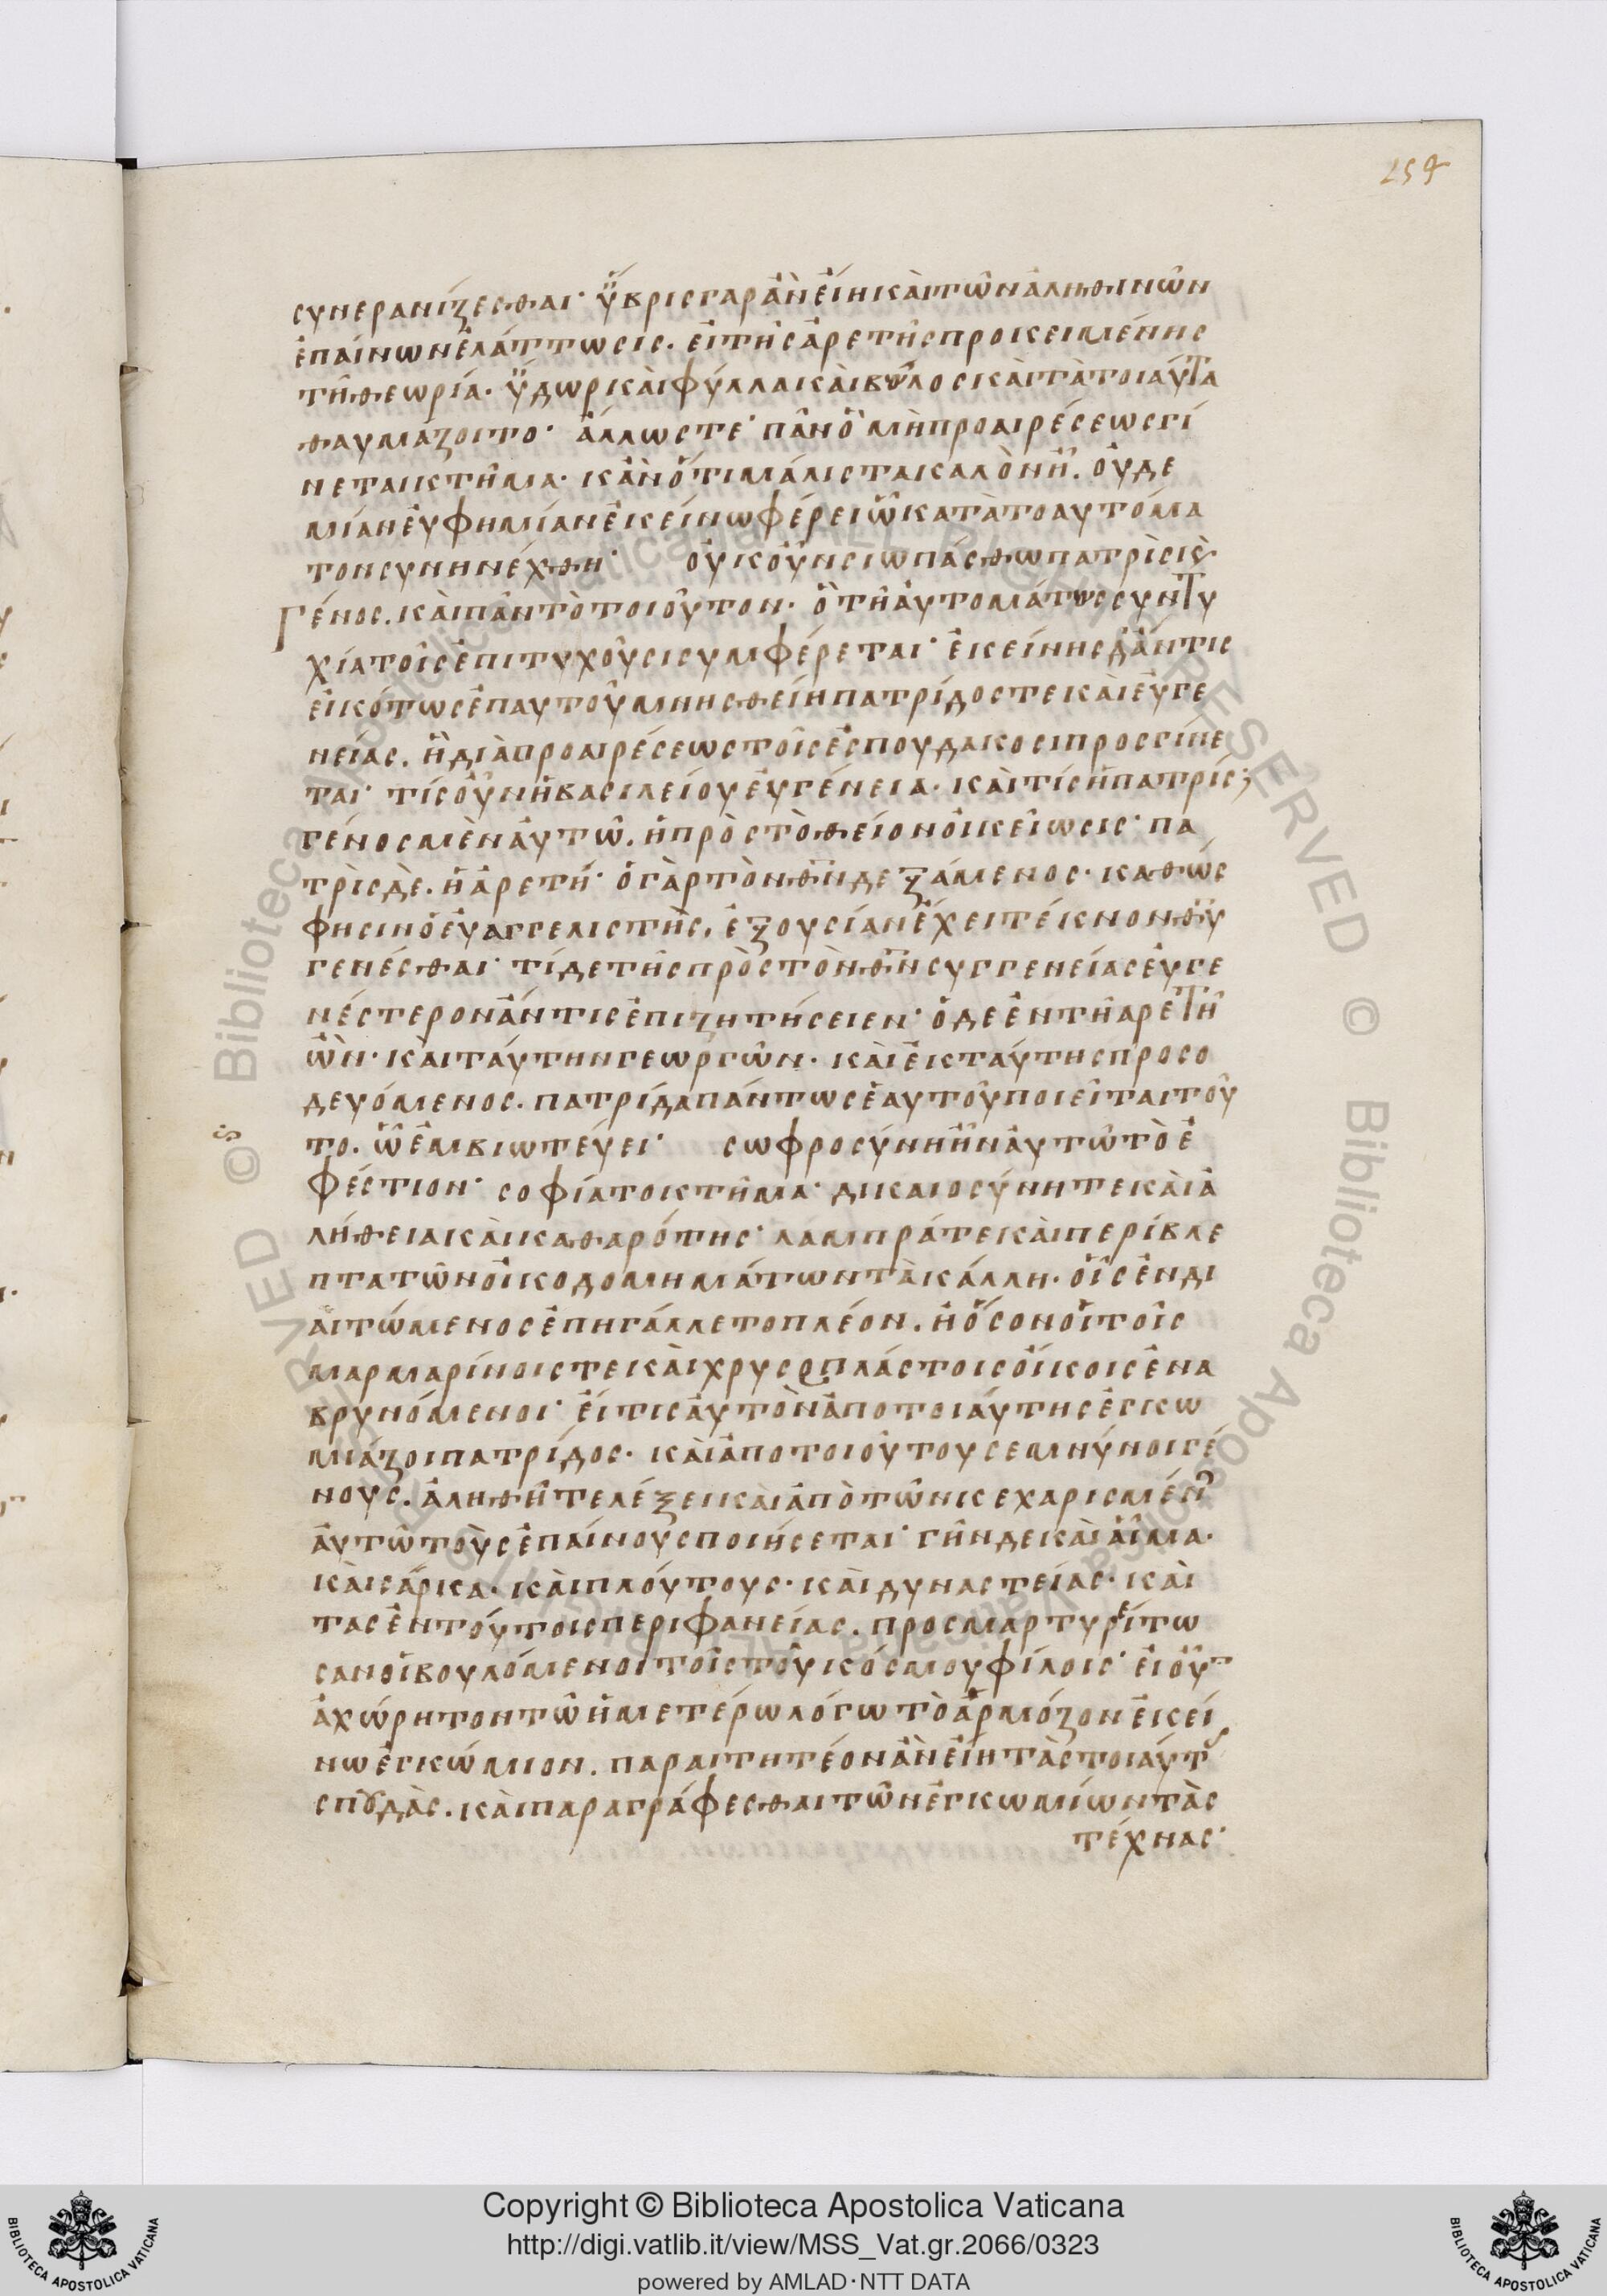 159
συνερανίζεσθαι· ὕβρις γὰρ ἂν εἴη καὶ τῶν ἀληθινῶν
ἐπαίνων ἐλάττωσις. εἰ τῆς ἀρετῆς προκειμένης
τῆ θεωρία. ὕδωρ καὶ φύλλα καὶ βῶλος καὶ τὰ τοιαῦτα
θαυμάζοιτο· ἄλλωστε πᾶν ὃ μὴ προαιρέσεως γί
νεται κτῆμα. κἂν ὅτι μάλιστα καλὸν ἦ. οὐδε
μίαν εὐφημίαν ἐκείνω φέρει ὧ κατὰ τὸ αὐτόμα
τον συνηνέχθη· οὐκοῦν σιωπάσθω πατρὶς κ(αὶ)
γένος. καὶ πᾶν τὸ τοιοῦτον. ὃ τῆ αὐτομάτω συντυ
χία τοῖς ἐπιτυχοῦσι συμφέρεται· ἐκείνης δ' ἄν τις
εἰκότως ἐπ' αὐτοῦ μνησθείη πατρίδος τε καὶ εὐγε
νείας. ἣ διὰ προαιρέσεως τοῖς ἐσπουδακόσι προσγίνε
ται· τίς οὖν ἡ βασιλείου εὐγένεια. καὶ τίς ἡ πατρίς;
γένος μὲν αὐτῶ. ἡ πρὸς τὸ θεῖον οἰκείωσις· πα
τρὶς δὲ. ἡ ἀρετή· ὁ γὰρ τὸν θν δεξάμενος. καθώς
φησιν ὁ εὐαγγελιστής, ἐξουσίαν ἔχει τέκνον θυ
γενέσθαι· τί δὲ τῆς πρὸς τὸν θν συγγενείας εὐγε
νέστερον ἄν τις ἐπιζητήσειεν· ὁ δὲ ἐν τῆ ἀρετῆ
ὢν. καὶ ταύτην γεωργῶν. καὶ ἐκ ταύτης προσο
δευόμενος. πατρίδα πάντως ἑαυτοῦ ποιεῖται τοῦ
το. ὧ ἐμβιωτεύει· σωφροσύνη ἦν αὐτῶ τὸ ἐ
φέστιον· σοφία τὸ κτῆμα· δικαιοσύνη τε καὶ ἀ
λήθεια καὶ καθαρότης· λαμπρά τε καὶ περίβλε
πτα τῶν οἰκοδομημάτων τὰ κάλλη. οἷς ἐνδι
αιτώμενος ἐπηγάλλετο πλέον. ἢ ὅσον οἱ τοῖς
μαρμαρίνοις τε καὶ χρυσοπλάστοις οἴκοις ἐνα
βρυνόμενοι· εἴ τις αὐτὸν ἀπὸ τοιαύτης ἐγκω
μιάζοι πατρίδος. καὶ ἀπὸ τοιούτου σεμνύνοι γέ
νους. ἀληθῆ τε λέξει καὶ ἀπὸ τῶν κεχαρισμέν(ων)
αὐτῶ τοὺς ἐπαίνους ποιήσεται· γῆν δὲ καὶ αἷμα.
καὶ σάρκα. καὶ πλούτους. καὶ δυναστείας. καὶ
τὰς ἐν τούτοις περιφανείας. προσμαρτυρείτω
σαν οἱ βουλόμενοι τοῖς τοῦ κόσμου φίλοις· εἰ οὖν
ἀχώρητον τῶ ἡμετέρω λόγω τὸ ἁρμόζον ἐκεί
νω ἐγκώμιον. παραιτητέον ἂν εἴη τὰς τοιαύτ(ας)
σπουδὰς. καὶ παραγράφεσθαι τῶν ἐγκωμίων τὰς
τέχνας·
Copyright © Biblioteca Apostolica Vaticana
http://digi.vatlib.it/view/MSS_Vat.gr.2066/0323
powered by AMLAD·NTT DATA